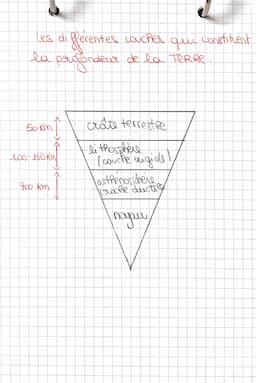 les différentes couches qui constituent
la profondeur de la TERRE.
50 km
croûte terrestre
100-150 km
lithosphère
(couche rigide)
700 km
asthénosphère
(roche ductile)
noyau